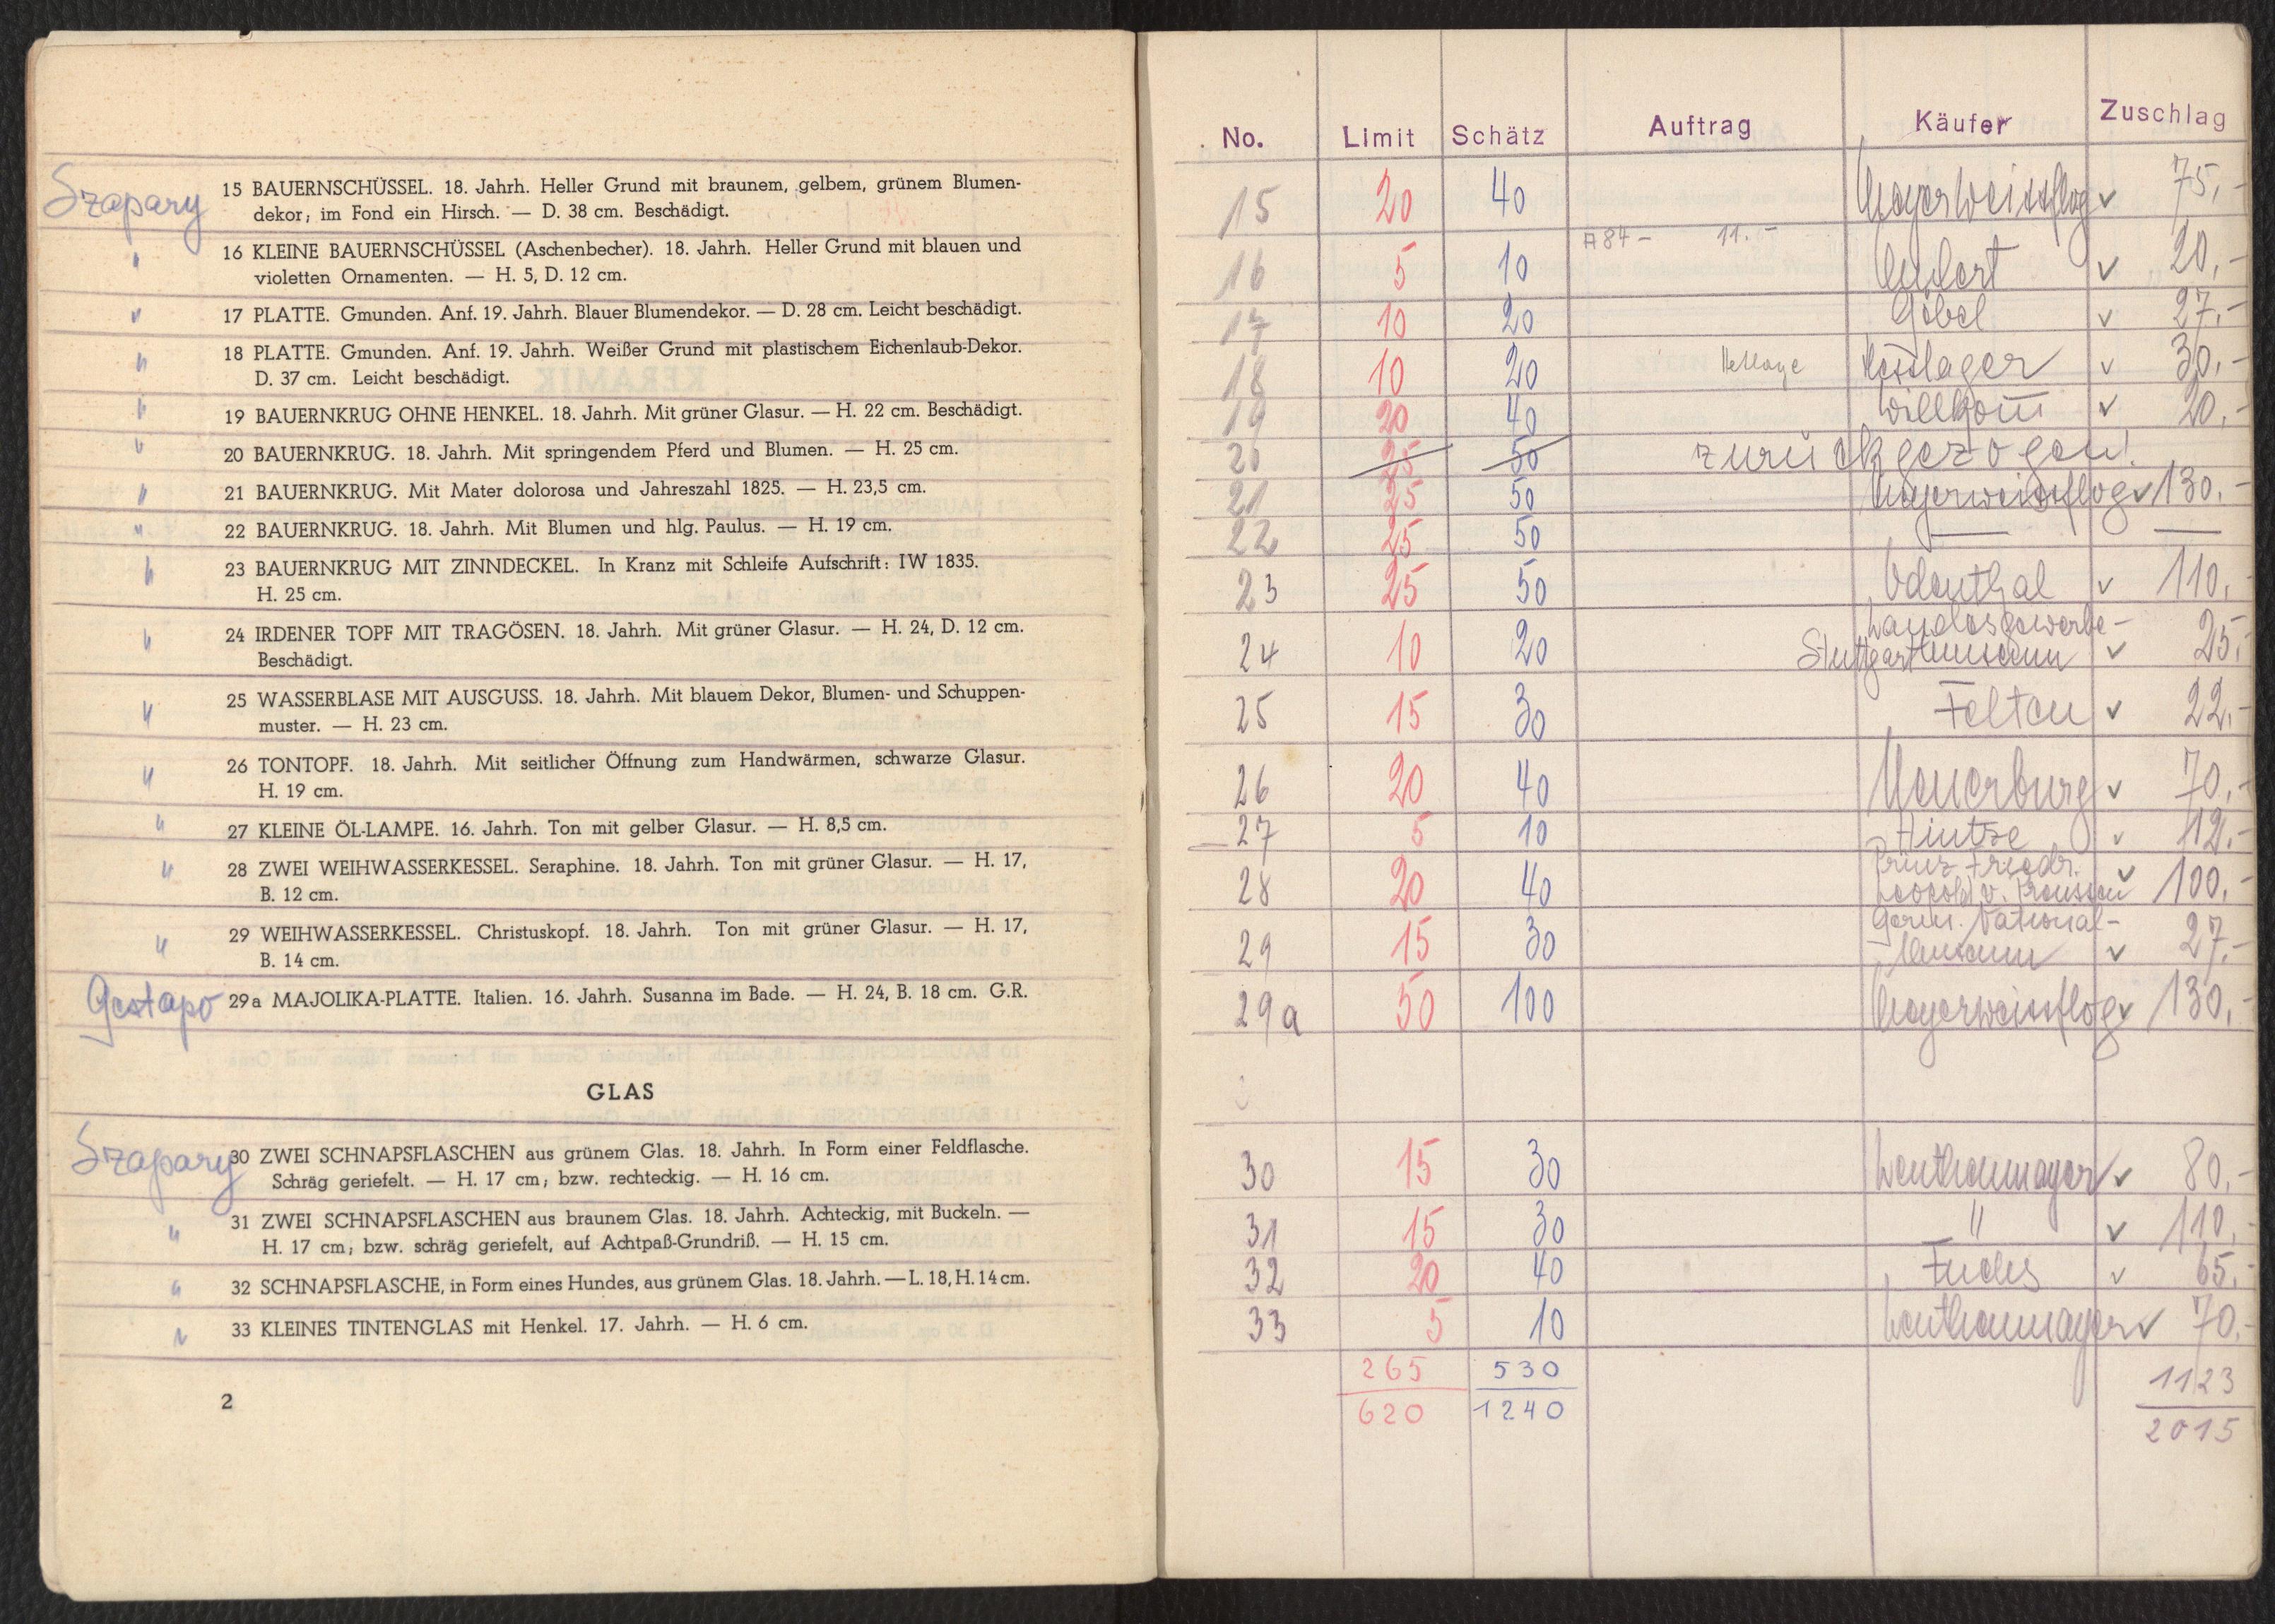 Szapary 15 BAUERNSCHÜSSEL. 18. Jahrh. Heller Grund mit braunem, gelbem, grünem Blumen-
dekor; im Fond ein Hirsch. — D. 38 cm. Beschädigt.
" 16 KLEINE BAUERNSCHÜSSEL (Aschenbecher). 18. Jahrh. Heller Grund mit blauen und
violetten Ornamenten. — H. 5, D. 12 cm.
" 17 PLATTE. Gmunden. Anf. 19. Jahrh. Blauer Blumendekor. — D. 28 cm. Leicht beschädigt.
" 18 PLATTE. Gmunden. Anf. 19. Jahrh. Weißer Grund mit plastischem Eichenlaub-Dekor.
D. 37 cm. Leicht beschädigt.
" 19 BAUERNKRUG OHNE HENKEL. 18. Jahrh. Mit grüner Glasur. — H. 22 cm. Beschädigt.
" 20 BAUERNKRUG. 18. Jahrh. Mit springendem Pferd und Blumen. — H. 25 cm.
" 21 BAUERNKRUG. Mit Mater dolorosa und Jahreszahl 1825. — H. 23,5 cm.
" 22 BAUERNKRUG. 18. Jahrh. Mit Blumen und hlg. Paulus. — H. 19 cm.
" 23 BAUERNKRUG MIT ZINNDECKEL. In Kranz mit Schleife Aufschrift: IW 1835.
H. 25 cm.
" 24 IRDENER TOPF MIT TRAGÖSEN. 18. Jahrh. Mit grüner Glasur. — H. 24, D. 12 cm.
Beschädigt.
" 25 WASSERBLASE MIT AUSGUSS. 18. Jahrh. Mit blauem Dekor, Blumen- und Schuppen-
muster. — H. 23 cm.
" 26 TONTOPF. 18. Jahrh. Mit seitlicher Öffnung zum Handwärmen, schwarze Glasur.
H. 19 cm.
" 27 KLEINE ÖL-LAMPE. 16. Jahrh. Ton mit gelber Glasur. — H. 8,5 cm.
" 28 ZWEI WEIHWASSERKESSEL. Seraphine. 18. Jahrh. Ton mit grüner Glasur. — H. 17,
B. 12 cm.
" 29 WEIHWASSERKESSEL. Christuskopf. 18. Jahrh. Ton mit grüner Glasur. — H. 17,
B. 14 cm.
Gestapo 29a MAJOLIKA-PLATTE. Italien. 16. Jahrh. Susanna im Bade. — H. 24, B. 18 cm. G.R.
GLAS
Szapary 30 ZWEI SCHNAPSFLASCHEN aus grünem Glas. 18. Jahrh. In Form einer Feldflasche.
Schräg geriefelt. — H. 17 cm; bzw. rechteckig. — H. 16 cm.
" 31 ZWEI SCHNAPSFLASCHEN aus braunem Glas. 18. Jahrh. Achteckig, mit Buckeln. —
H. 17 cm; bzw. schräg geriefelt, auf Achtpaß-Grundriß. — H. 15 cm.
" 32 SCHNAPSFLASCHE, in Form eines Hundes, aus grünem Glas. 18. Jahrh. — L. 18, H. 14 cm.
" 33 KLEINES TINTENGLAS mit Henkel. 17. Jahrh. — H. 6 cm.
2
No. Limit Schätz Auftrag Käufer Zuschlag
15 20 40 Mayerweissflog ✓ 75,-
A 84 - 11.-
16 5 10 ✓ 20,-
17 10 20 Göbel ✓ 27,-
18 10 20 ✓ 30,-
19 20 40 Willkom̅ ✓ 20,-
20 25 50 zurückgezogen!
21 25 50 Mayerweissflog ✓ 130,-
22 25 50 — —
23 25 50 Odenthal ✓ 110,-
Landesgewerbe-
24 10 20 Stuttgart museum ✓ 25,-
25 15 30 Felten ✓ 22,-
26 20 40 Neuerburg ✓ 70,-
27 5 10 Hintze ✓ 12,-
Prinz Friedr.
28 20 40 Leopold v. Preussen ✓ 100,-
Germ. National-
29 15 30 Museum ✓ 27,-
29a 50 100 Mayerweissflog ✓ 130,-
30 15 30 Leuthenmayer ✓ 80,-
31 15 30 " ✓ 110,-
32 20 40 Fuchs ✓ 65,-
33 5 10 Leuthenmayer ✓ 70,-
265 530 1123
620 1240 2015